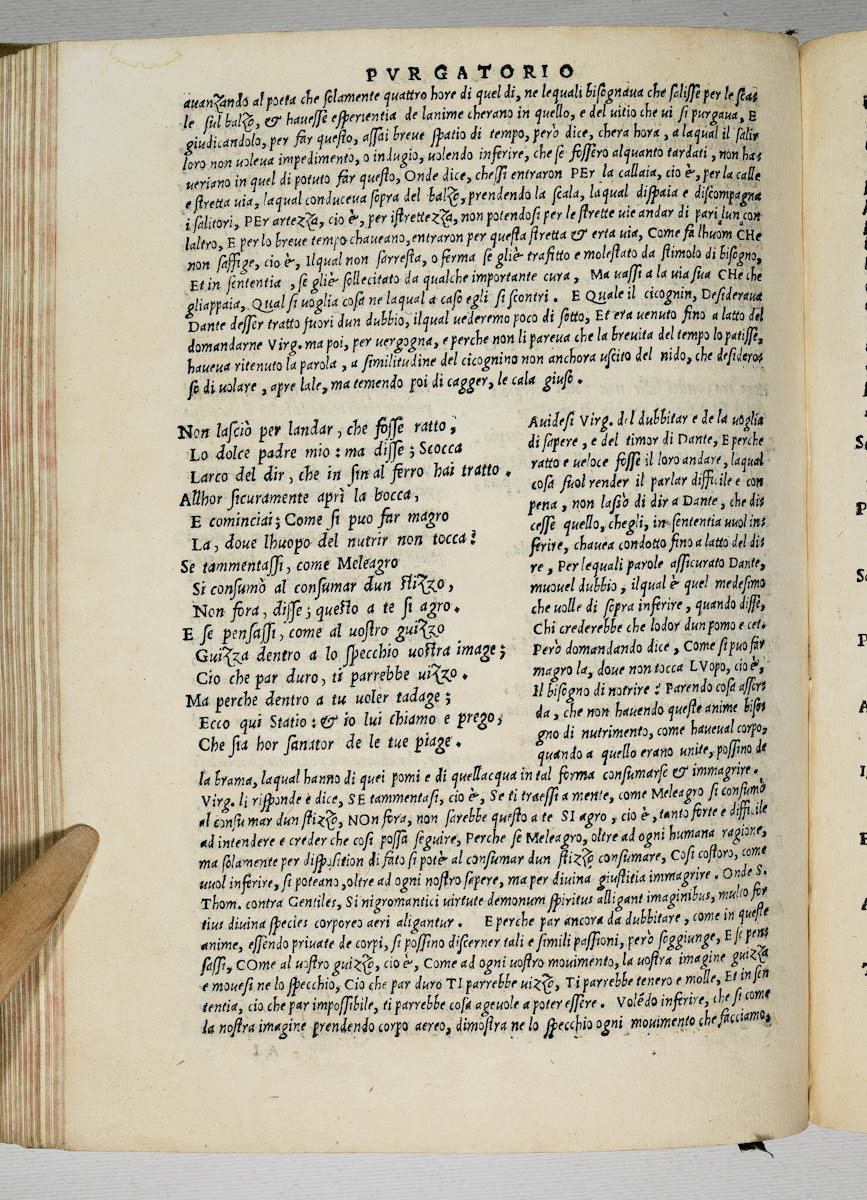 PVRGATORIO
auanzando al poeta che solamente quattro hore di quel di, ne lequali bisognaua che salisse per le sca-
le sul balzo, & hauesse esperientia de lanime cherano in quello, e del uitio che ui si purgaua, E
giudicandolo, per far questo, assai breue spatio di tempo, però dice, chera hora, a laqual il salir
loro non uoleua impedimento, o indugio, uolendo inferire, che se fossero alquanto tardati, non ha-
ueriano in quel di potuto far questo, Onde dice, chessi entraron PEr la callaia, cio è, per la calle
e stretta uia, laqual conduceua sopra del balzo, prendendo la scala, laqual dispaia e discompagna
i salitori, PEr artezza, cio è, per istrettezza, non potendosi per le strette uie andar di pari lun con
laltro, E per lo breue tempo chaueano, entraron per questa stretta & erta uia, Come fa lhuom CHe
non saffige, cio è, Ilqual non sarresta, o ferma se gliè trafitto e molestato da stimolo di bisogno,
Et in sententia, se gliè sollecitato da qualche importante cura, Ma uassi a la uia sua CHe che
gliappaia, Qual si uoglia cosa ne laqual a caso egli si scontri. E Quale il cicognin, Desideraua
Dante desser tratto fuori dun dubbio, ilqual uederemo poco di sotto, Et era uenuto fino a latto del
domandarne Virg. ma poi, per uergogna, e perche non li pareua che la breuita del tempo lo patisse,
haueua ritenuto la parola, a similitudine del cicognino non anchora uscito del nido, che desidero-
so di uolare, apre lale, ma temendo poi di cagger, le cala giuso.
Non lasciò per landar, che fosse ratto,
Lo dolce padre mio: ma disse; Scocca
Larco del dir, che in sin al ferro hai tratto.
Allhor sicuramente aprì la bocca,
E cominciai; Come si puo far magro
La, doue lhuopo del nutrir non tocca?
Se tammentassi, come Meleagro
Si consumò al consumar dun stizzo,
Non fora, disse; questo a te si agro.
E se pensassi, come al uostro guizzo
Guizza dentro a lo specchio uostra image;
Cio che par duro, ti parrebbe uizzo.
Ma perche dentro a tu uoler tadage;
Ecco qui Statio: & io lui chiamo e prego,
Che sia hor sanator de le tue piage.
Auidesi Virg. del dubbitar e de la uoglia
di sapere, e del timor di Dante, E perche
ratto e ueloce fosse il loro andare, laqual
cosa suol render il parlar difficile e con
pena, non lasciò di dir a Dante, che di-
cesse quello, chegli, in sententia uuol in-
ferire, chauea condotto fino a latto del di-
re, Per lequali parole assicurato Dante,
muouel dubbio, ilqual è quel medesimo
che uolle di sopra inferire, quando disse,
Chi crederebbe che lodor dun pomo e cet.
Però domandando dice, Come si puo far
magro la, doue non tocca LVopo, cio è,
Il bisogno di notrire? Parendo cosa assur-
da, che non hauendo queste anime biso-
gno di nutrimento, come haueual corpo,
quando a quello erano unite, possino de
la brama, laqual hanno di quei pomi e di quellacqua in tal forma consumarse & immagrire.
Virg. li risponde e dice, SE tammentasi, cio è, Se ti traessi a mente, come Meleagro si consumò
al consumar dun stizzo, NOn fora, non sarebbe questo a te SI agro, cio è, tanto forte e difficile
ad intendere e creder che cosi possa seguire, Perche se Meleagro, oltre ad ogni humana ragione,
ma solamente per disposition di fato si potè al consumar dun stizzo consumare, Cosi costoro, come
uuol inferire, si poteano, oltre ad ogni nostro sapere, ma per diuina giustitia immagrire. Onde S.
Thom. contra Gentiles, Si nigromantici uirtute demonum spiritus alligant imaginibus, multo for
tius diuina species corporeo aeri aligantur. E perche par ancora da dubbitare, come in queste
anime, essendo priuate de corpi, si possino discerner tali e simili passioni, però soggiunge, E se pen-
sassi, COme al uostro guizzo, cio è, Come ad ogni uostro mouimento, la uostra imagine guizza
e mouesi ne lo specchio, Cio che par duro TI parrebbe uizzo, Ti parrebbe tenero e molle, Et in sen
tentia, cio che par impossibile, ti parrebbe cosa ageuole a poter essere. Volēdo inferire, che si come
la nostra imagine prendendo corpo aereo, dimostra ne lo specchio ogni mouimento che facciamo,